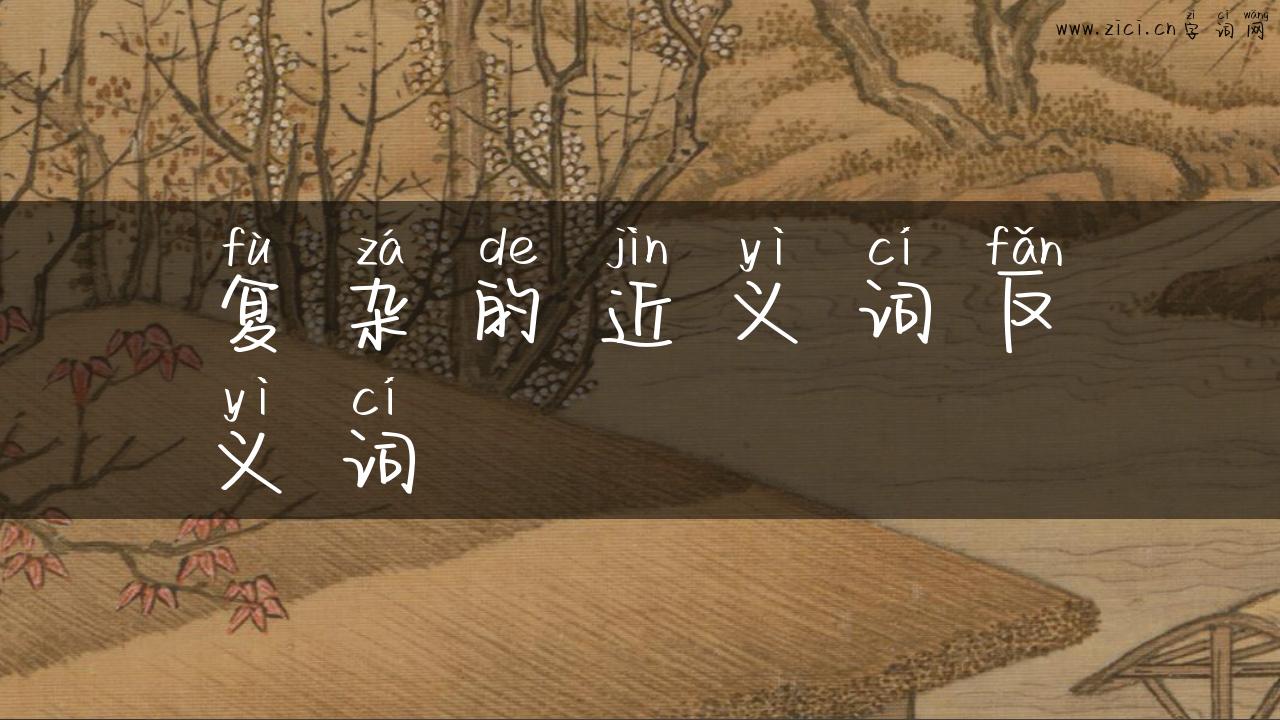 zì cí wǎng
www.zici.cn 字词网
fù zá de jìn yì cí fǎn
复杂的近义词反
yì cí
义词